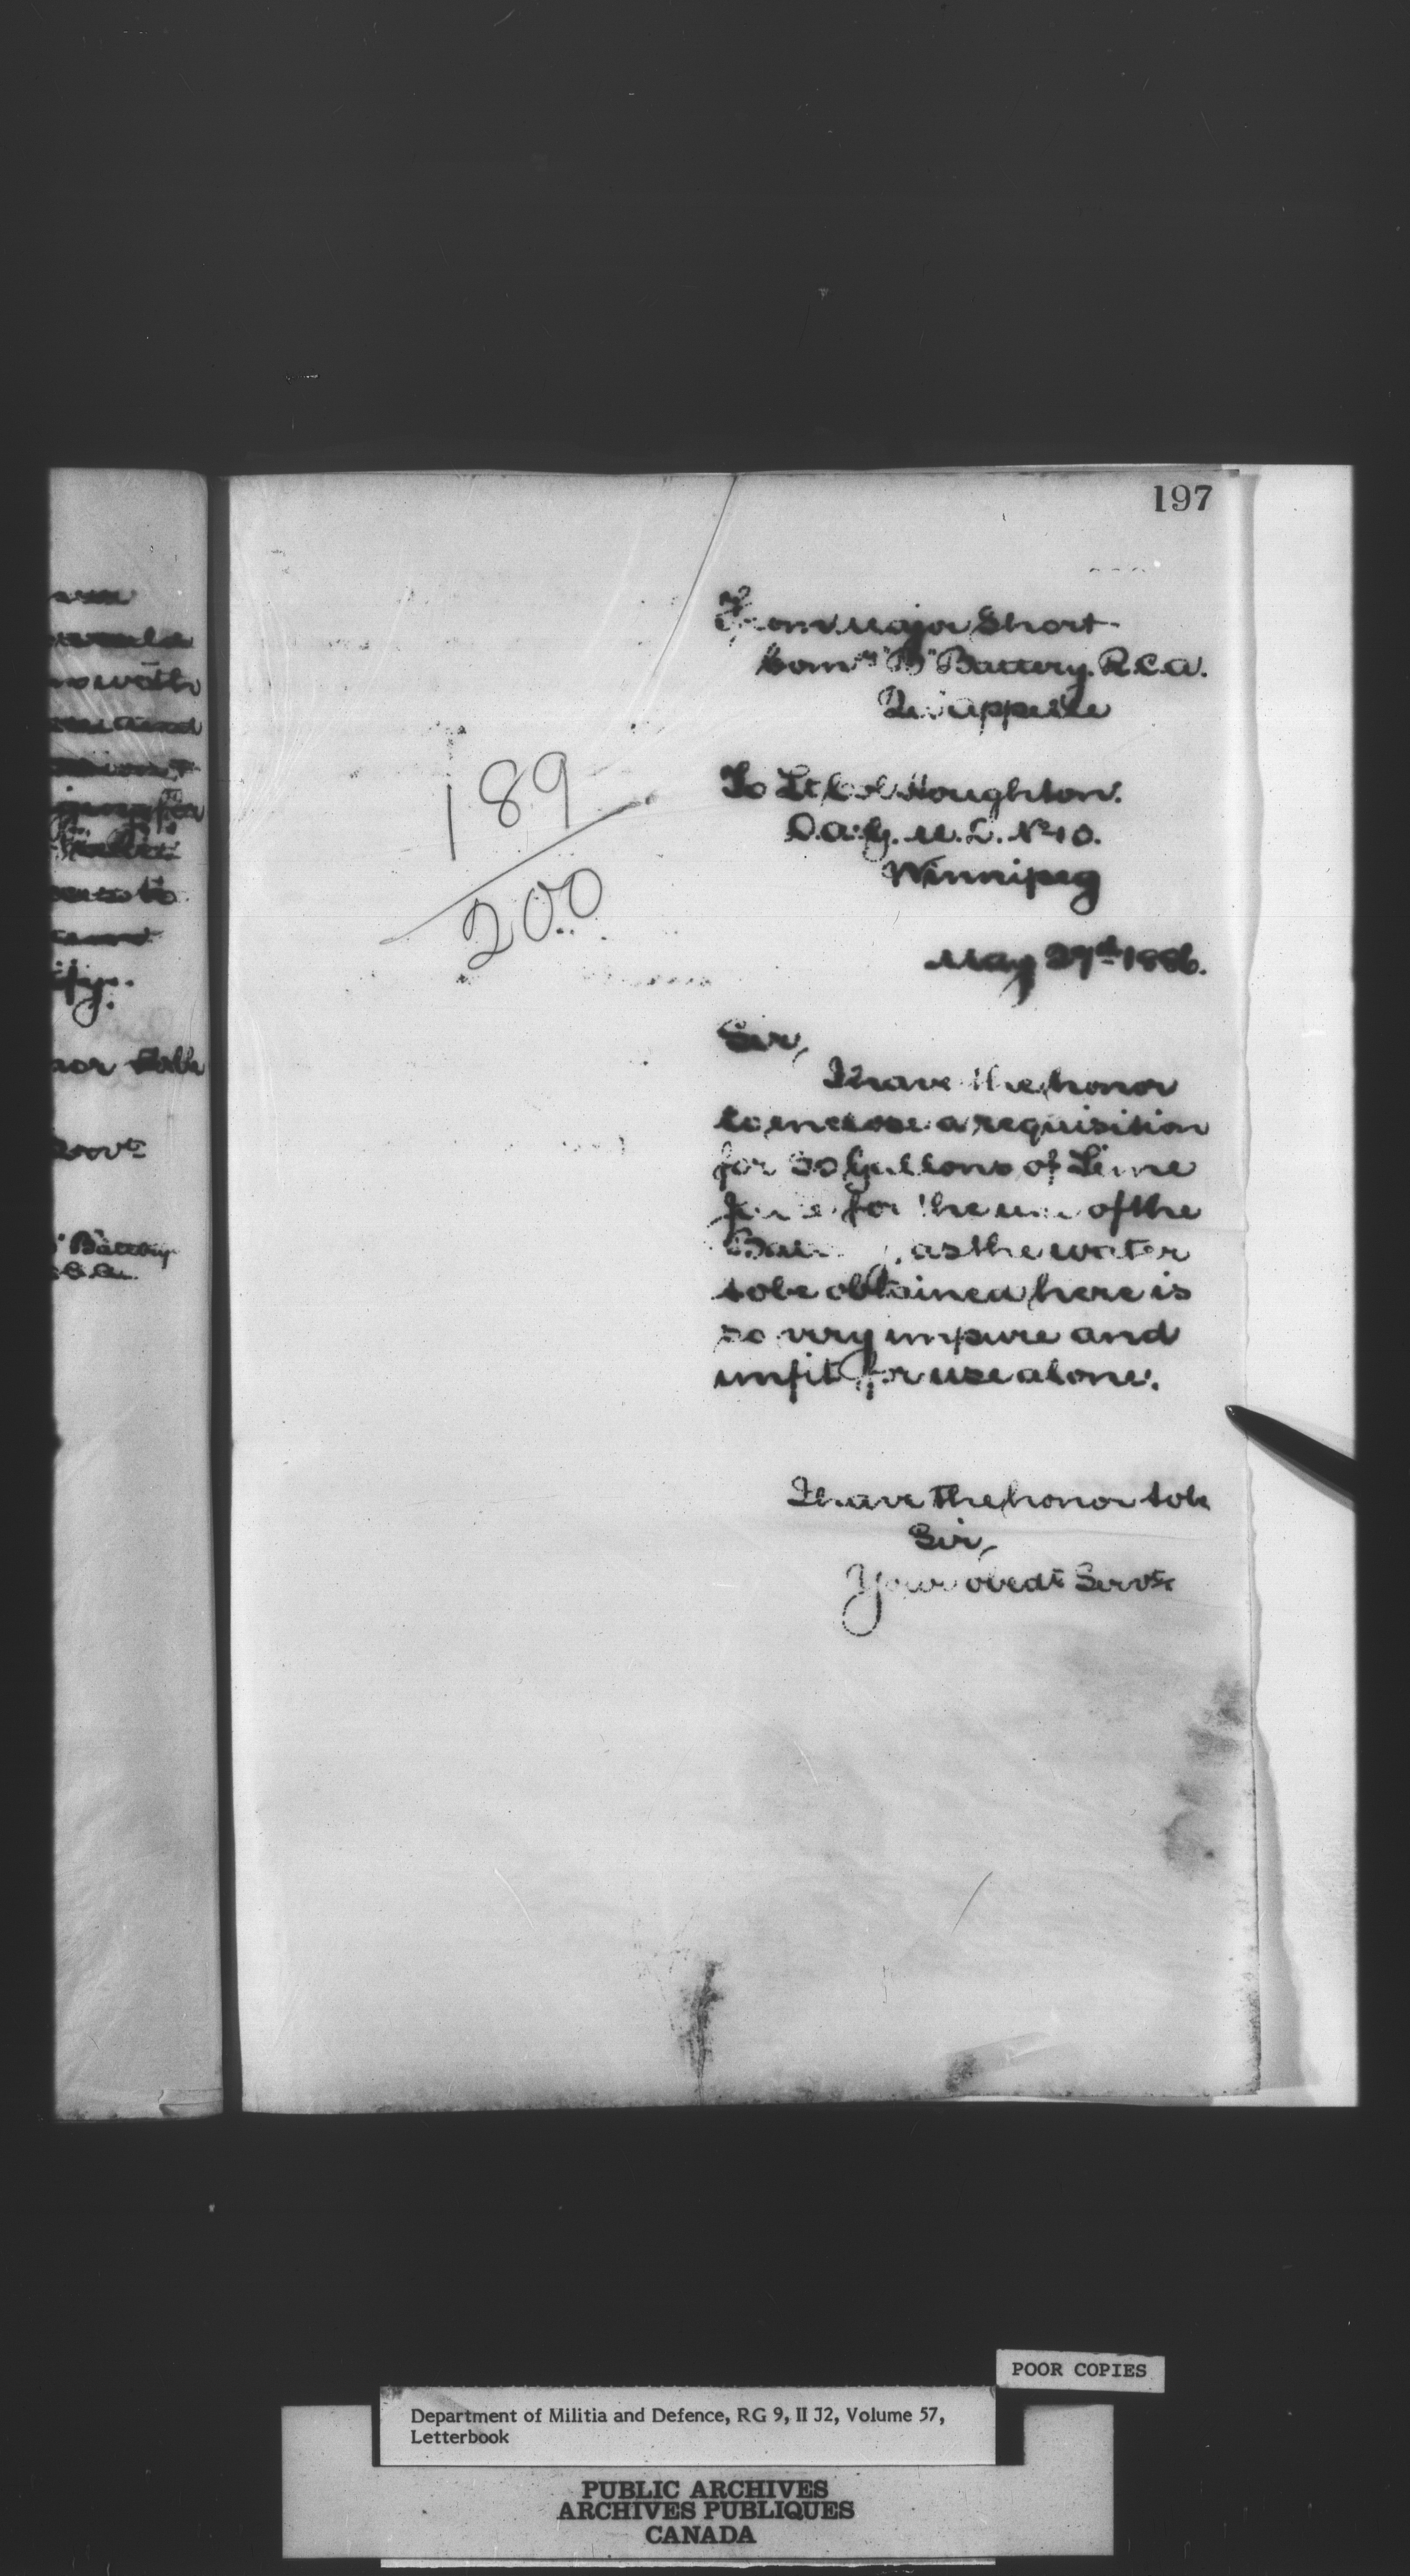 197
From Major Short
Comg "B" Battery. R.C.A.
Qu'appelle
To Lt Col Houghton.
D.A.G. M.D. No 10.
Winnipeg
189
200
May 1886.
Sir,
I have the honor
to enclose a requisition
for Gallons of Lime
Juice for the use of the
Battery, as the water
to be obtained here is
so very impure and
unfit for use alone.
I have the honor to be
Sir,
Your obedt Servt
with
and
Battery
POOR COPIES
Department of Militia and Defence, RG 9, II J2, Volume 57,
Letterbook
PUBLIC ARCHIVES
ARCHIVES PUBLIQUES
CANADA